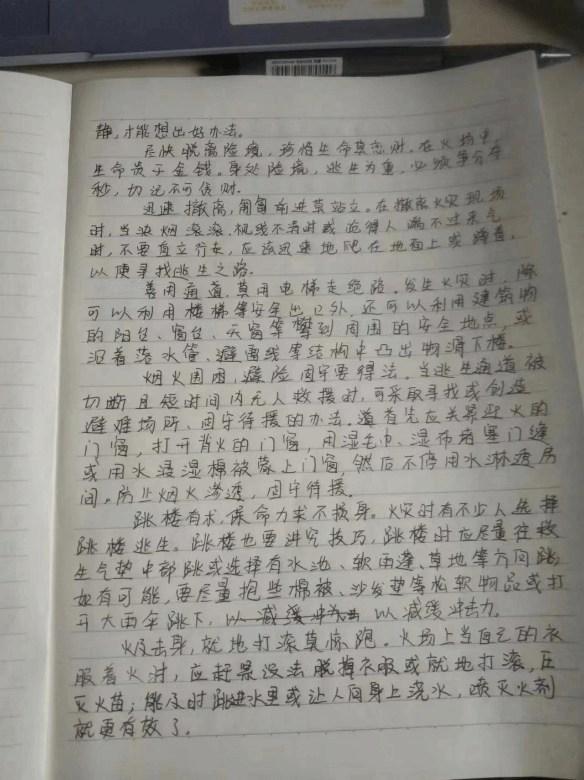 静，才能想出好办法。
尽快脱离险境，珍惜生命莫恋财。在火场中，
生命贵于金钱。身处险境，逃生为重，必须争分夺
秒，切记不可贪财。
迅速撤离，匍匐前进莫站立。在撤离火灾现场
时，当浓烟滚滚、视线不清时或呛得人喘不过来气
时，不要直立行走，应该迅速地爬在地面上或蹲着，
以便寻找逃生之路。
善用通道，莫用电梯走绝路。发生火灾时，除
可以利用楼梯等安全出口外，还可以利用建筑物
的阳台、窗台、天窗等攀到周围的安全地点，或
沿着落水管、避雷线等结构中凸出物滑下楼。
烟火围困，避险固守要得法。当逃生通道被
切断且短时间内无人救援时，可采取寻找或创造
避难场所、固守待援的办法。首先应关紧迎火的
门窗，打开背火的门窗，用湿毛巾、湿布堵塞门缝
或用水浸湿棉被蒙上门窗，然后不停用水淋透房
间。防止烟火渗透，固守待援。
跳楼有术，保命力求不损身。火灾时有不少人选择
跳楼逃生。跳楼也要讲究技巧，跳楼时应尽量往救
生气垫中部跳或选择有水池、软雨蓬、草地等方向跳
如有可能，要尽量抱些棉被、沙发垫等松软物品或打
开大雨伞跳下，以减缓冲击 以减缓冲击力。
火及击身，就地打滚莫惊跑。火场上当自己的衣
服着火时，应赶紧设法脱掉衣服或就地打滚，压
灭火苗；能及时跳进水里或让人向身上浇水，喷灭火剂
就更有效了。